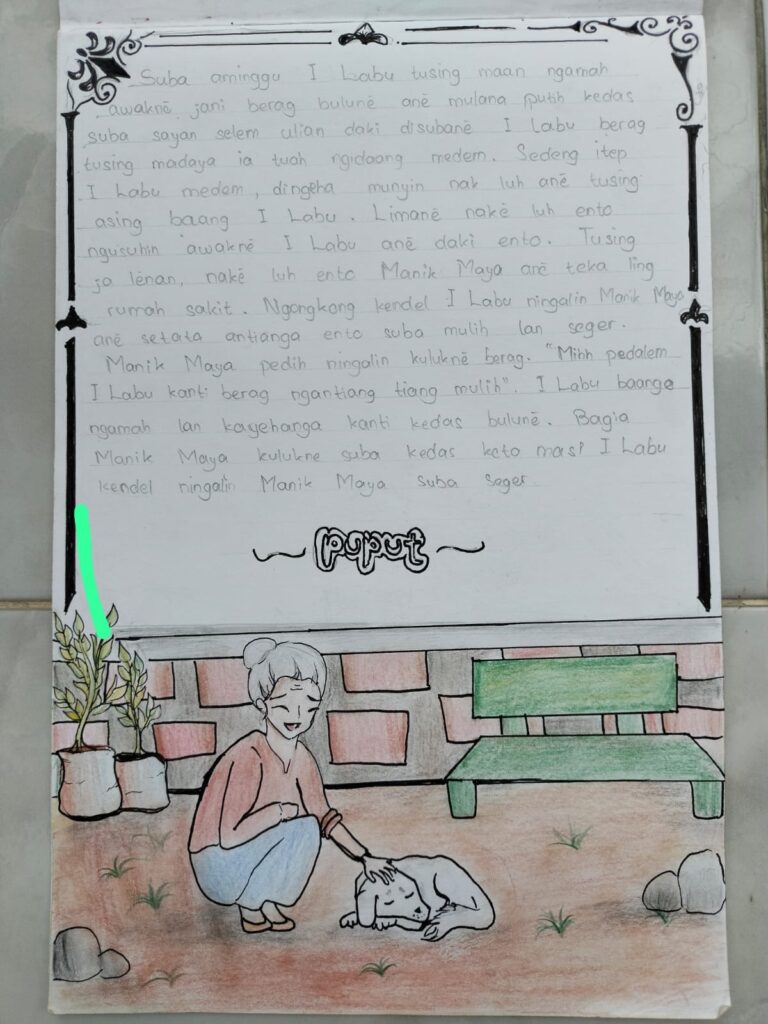 Suba aminggu I Labu tusing maan ngamah
awaknē jani berag bulunē anē mulana putih kedas
suba sayan selem ulian daki disubanē I Labu berag
tusing madaya ia tuah ngidaang medem. Sedeng itep
I Labu medem, dingeha munyin nak luh anē tusing
asing baang I Labu. Limanē nakē luh ento
ngusuhin awaknē I Labu anē daki ento. Tusing
ja lēnan, nakē luh ento Manik Maya anē teka ling
rumah sakit. Ngongkong kendel I Labu ningalin Manik Maya
anē setata antianga ento suba mulih lan seger.
Manik Maya pedih ningalin kuluknē berag. "Mihh pedalem
I Labu kanti berag ngantiang tiang mulih". I Labu baanga
ngamah lan kayehanga kanti kedas bulunē. Bagia
Manik Maya kulukne suba kedas keto masi I Labu
kendel ningalin Manik Maya suba seger
puput